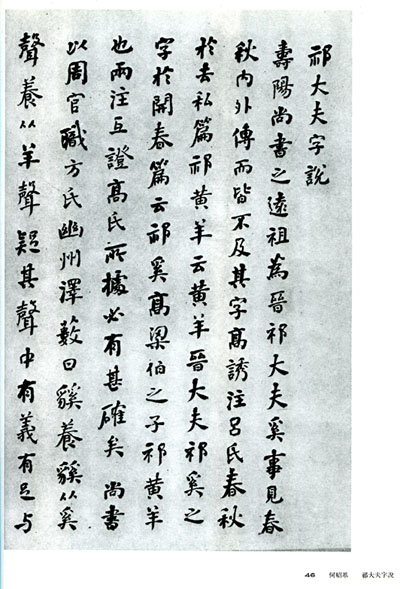 祁大夫字說
壽陽尚書之遠祖為晉祁大夫奚事見春
秋內外傳而皆不及其字高誘注呂氏春秋
於去私篇祁黃羊云黃羊晉大夫祁奚之
字於開春篇云祁奚高梁伯之子祁黃羊
也兩注互證高氏所據必有甚確矣尚書
以周官職方氏幽州澤藪曰貕養貕从奚
聲養从羊聲疑其聲中有義有足与
46 何紹基 祁大夫字說